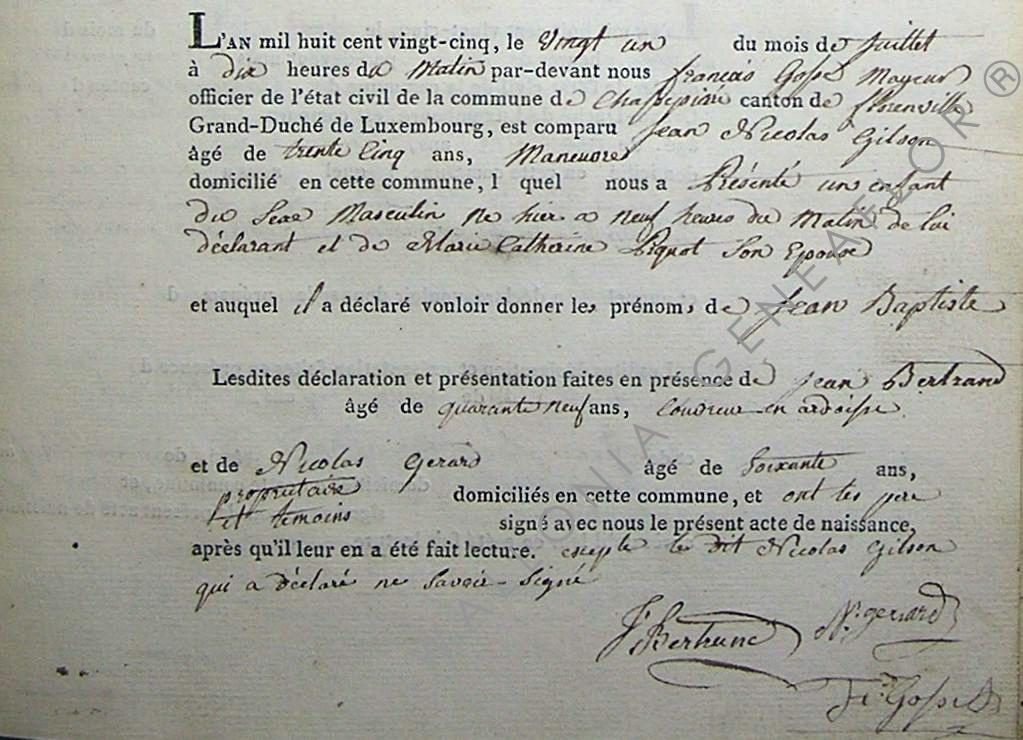 L'AN mil huit cent vingt-cinq, le vingt un du mois de juillet
à dix heures du Matin par-devant nous françois Gosse Mayeur
officier de l'état civil de la commune de Chassepierre canton de florenville
Grand-Duché de Luxembourg, est comparu Jean Nicolas Gilson
âgé de trente Cinq ans, Maneuvre
domicilié en cette commune, l quel nous a Présenté un enfant
du Sexe Masculin né hier a neuf heures du Matin de lui
déclarant et de Marie Catherine Piquot Son Epouse
et auquel il a déclaré vouloir donner les prénoms de Jean Baptiste
Lesdites déclaration et présentation faites en présence de Jean Bertrand
âgé de quarante neuf ans, Couvreur en ardoise
et de Nicolas Gerard âgé de Soixante ans,
propriétaire domiciliés en cette commune, et ont les pere
et temoins signé avec nous le présent acte de naissance,
après qu'il leur en a été fait lecture. excepte le dit Nicolas Gilson
qui a déclaré ne Savoir Signé
J Bertrand N. gerard
Fs Gosse
GENEAFLOR ®